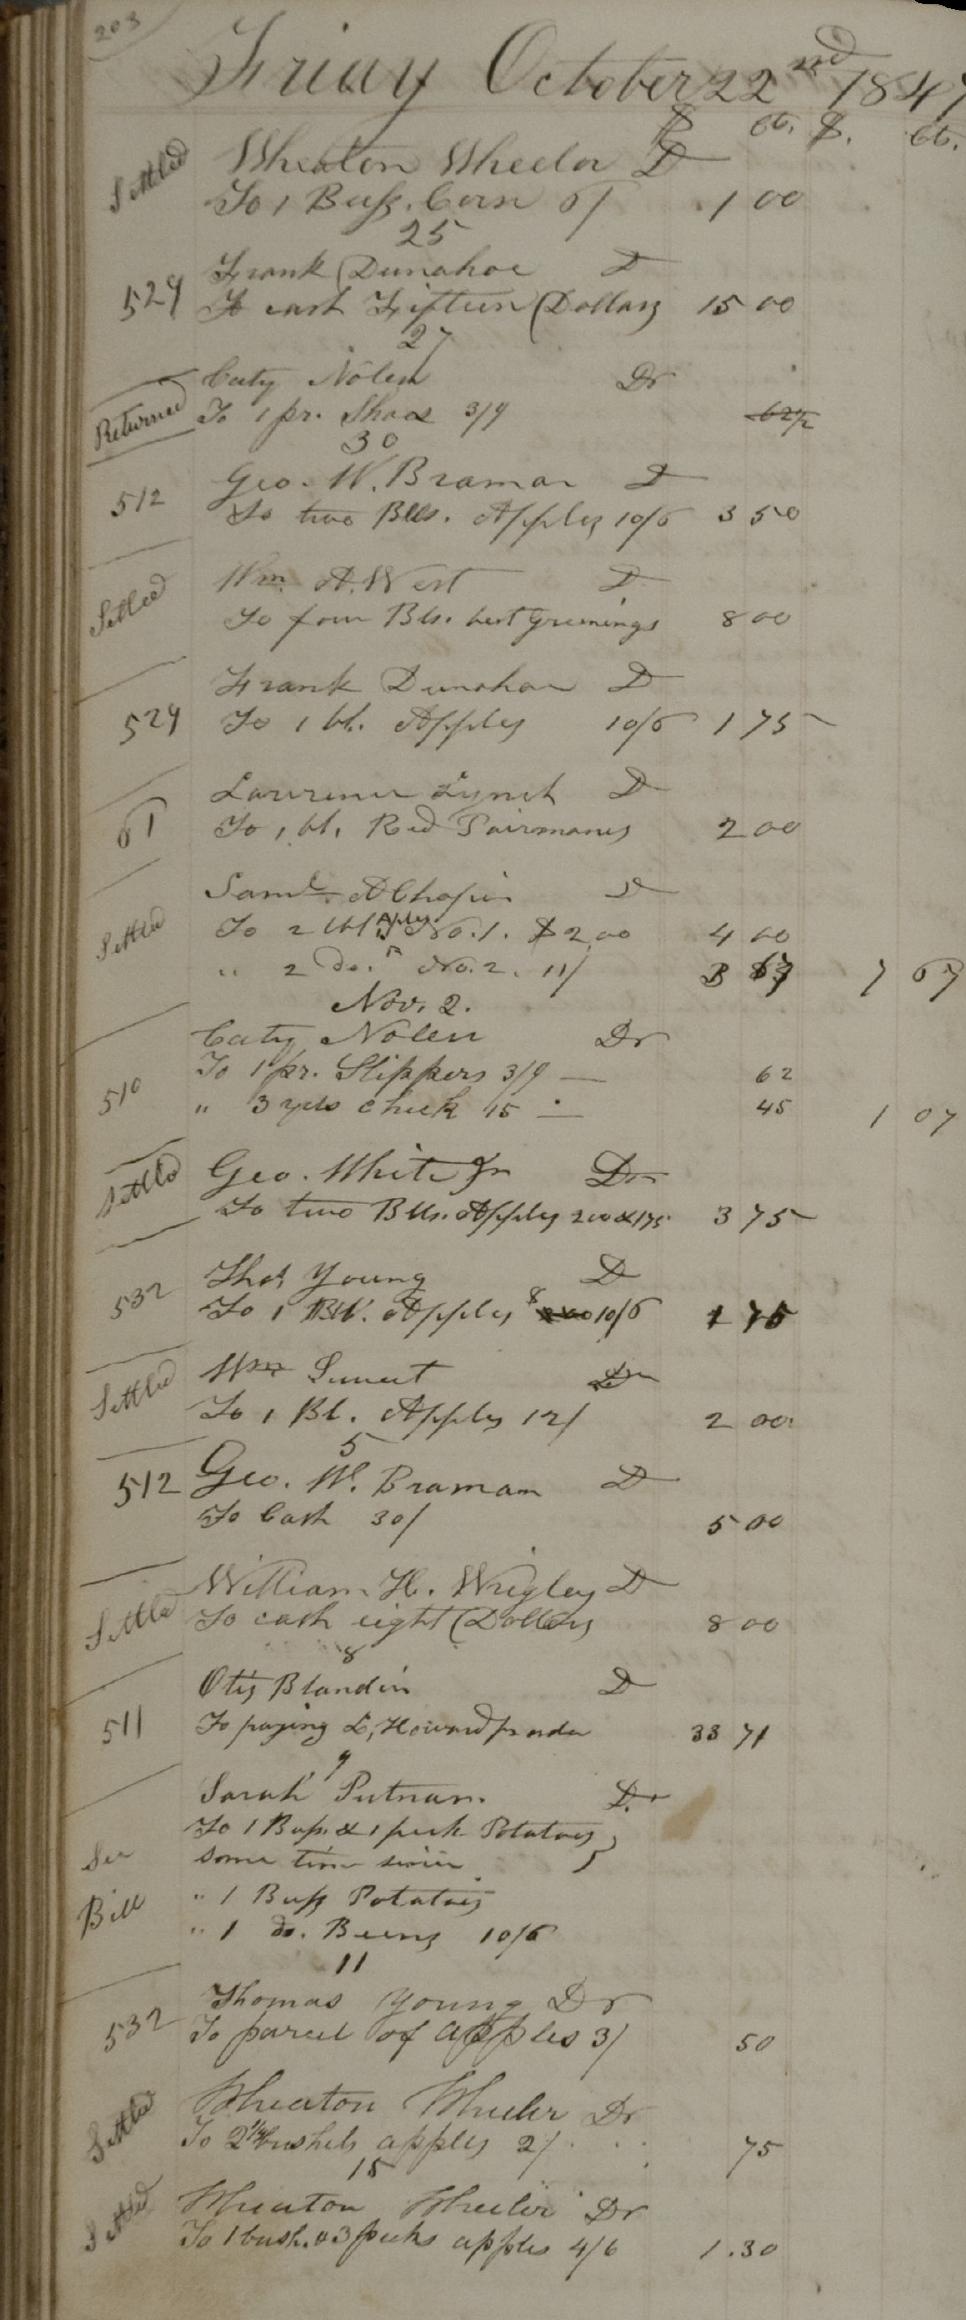 203
Friday October 22nd 1847
$ cts. $. cts.
Settled Wheaton Wheeler D
To 1 Bush. Corn 6/ 1 00
25
529 Frank Dunahoe D
To cash Fifteen Dollars 15 00
27
Caty Nolen Dr
Returned To 1 pr. Shoes 3/9 62½
30
512 Geo. W. Braman D
To two Bbls. Apples 10/6 3 50
Settled Wm. A. West D
To four Bls. best Greenings 8 00
529 Frank Dunahoe D
To 1 bl. Apples 10/6 1 75
61 Lawrence Lynch D
To 1 bl. Red Pairmanes 2 00
Settled Saml. A Chapin D
To 2 bbls Apls No. 1. $2,00 4 00
" 2 do. " No. 2. 11/ 3 67 7 67
Nov. 2.
Caty Nolen Dr
510 To 1 pr. Slippers 3/9 — 62
" 3 yds check 15 — 45 1 07
Settled Geo. White Jr Dr
To two Bbls. Apples 200 & 175 3 75
532 Thos Young D
To 1 Bbl. Apples 10/6 1 75
Settled Wm Sweet Dr
To 1 Bl. Apples 12/ 2 00
5
512 Geo. W. Braman D
To Cash 30/ 5 00
Settled William H. Wrigley D
To cash eight Dollars 8 00
8
Otis Blandin D
511 To paying L, Howard pr order 33 71
9
Sarah Putnam. Dr
To 1 Bush. & 1 peck Potatoes
See some time since
Bill " 1 Bush Potatoes
" 1 do. Beens 10/6
11
532 Thomas Young Dr
To parcel of apples 3/ 50
Settled Wheaton Wheeler Dr
To 2¼ bushels apples 2/ 75
15
Settled Wheaton Wheeler Dr
To 1 bush. & 3 pecks apples 4/6 1.30